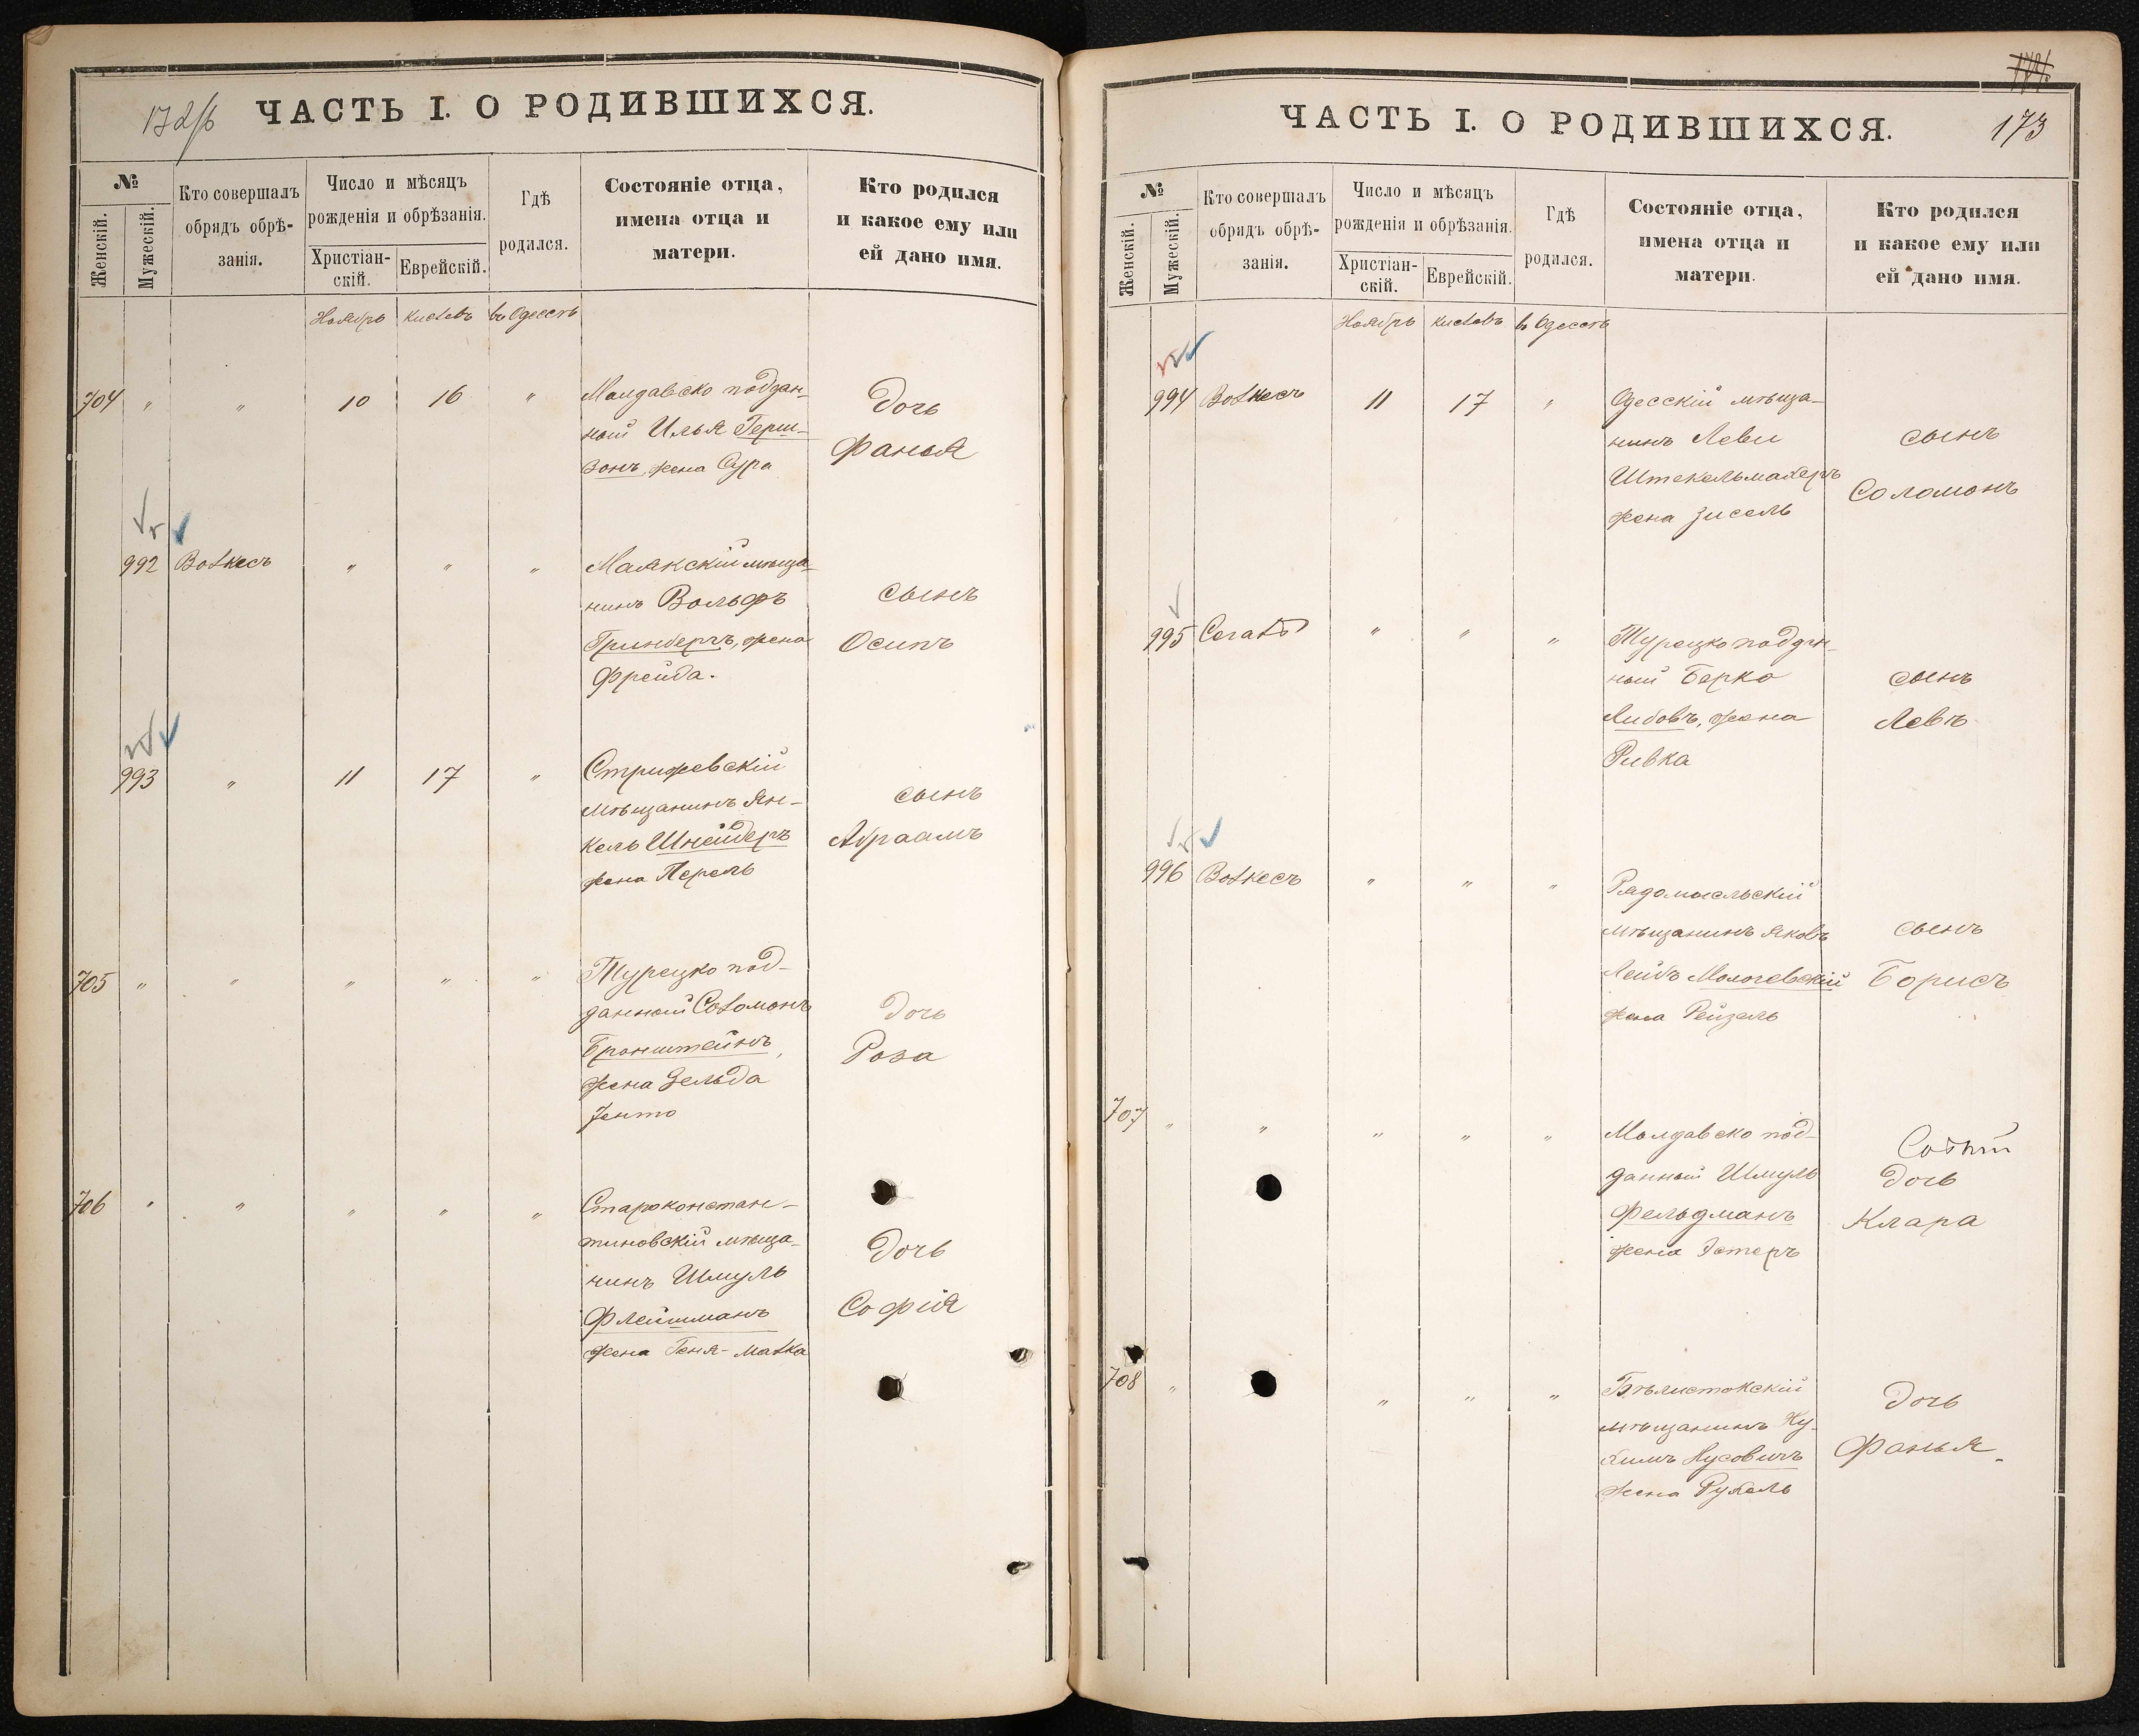 172/б ЧАСТЬ I. О РОДИВШИХСЯ.
№
Женскій.
Мужескій.
Кто совершалъ
обрядъ обрѣ-
занія.
Число и мѣсяцъ
рожденія и обрѣзанія.
Христіан-
скій.
Еврейскій.
Гдѣ
родился.
Состояніе отца,
имена отца и
матери.
Кто родился
и какое ему или
ей дано имя.
Ноябрь Кислевъ въ Одессѣ
704 " " 10 16 "
Молдавско поддан-
ный Илья Герш-
зонъ, жена Сура
Дочь
Фанья
992 Волкесъ " " "
Маякскій мѣща-
нинъ Вольфъ
Гринбергъ, жена
Фрейда.
сынъ
Осипъ
993 " 11 17 "
Стрижевскій
мѣщанинъ Ян-
кель Шнейдеръ
жена Перель
сынъ
Абраамъ
705 " " " " "
Турецко под-
данный Соломонъ
Бронштейнъ,
жена Зельда
Дочь
Роза
706 " " " " "
Староконстан-
тиновскій мѣща-
нинъ Шмуль
Флейшманъ
жена Геня-Малка
Дочь
Софія
173
ЧАСТЬ I. О РОДИВШИХСЯ.
№
Женскій.
Мужескій.
Кто совершалъ
обрядъ обрѣ-
занія.
Число и мѣсяцъ
рожденія и обрѣзанія.
Христіан-
скій.
Еврейскій.
Гдѣ
родился.
Состояніе отца,
имена отца и
матери.
Кто родился
и какое ему или
ей дано имя.
Ноябрь Кислевъ въ Одессѣ
994 Волкесъ 11 17 "
Одесскій мѣща-
нинъ Леви
Штекельмахеръ
жена Зисель
сынъ
Соломонъ
995 Сегалъ " " "
Турецко поддан-
ный Берко
Либовъ, жена
Ривка
сынъ
Левъ
996 Волкесъ " " "
Радомысльскій
мѣщанинъ Яковъ
Лейбъ
жена Рейзель
сынъ
Борисъ
707 " " " " "
Молдавско под-
данный Шмуль
Фельдманъ
жена Эстеръ
Дочь
Клара
708 " " " "
Бѣлистокскій
мѣщанинъ Ну-
химъ Нусовичъ
жена Рухель
Дочь
Фанья.